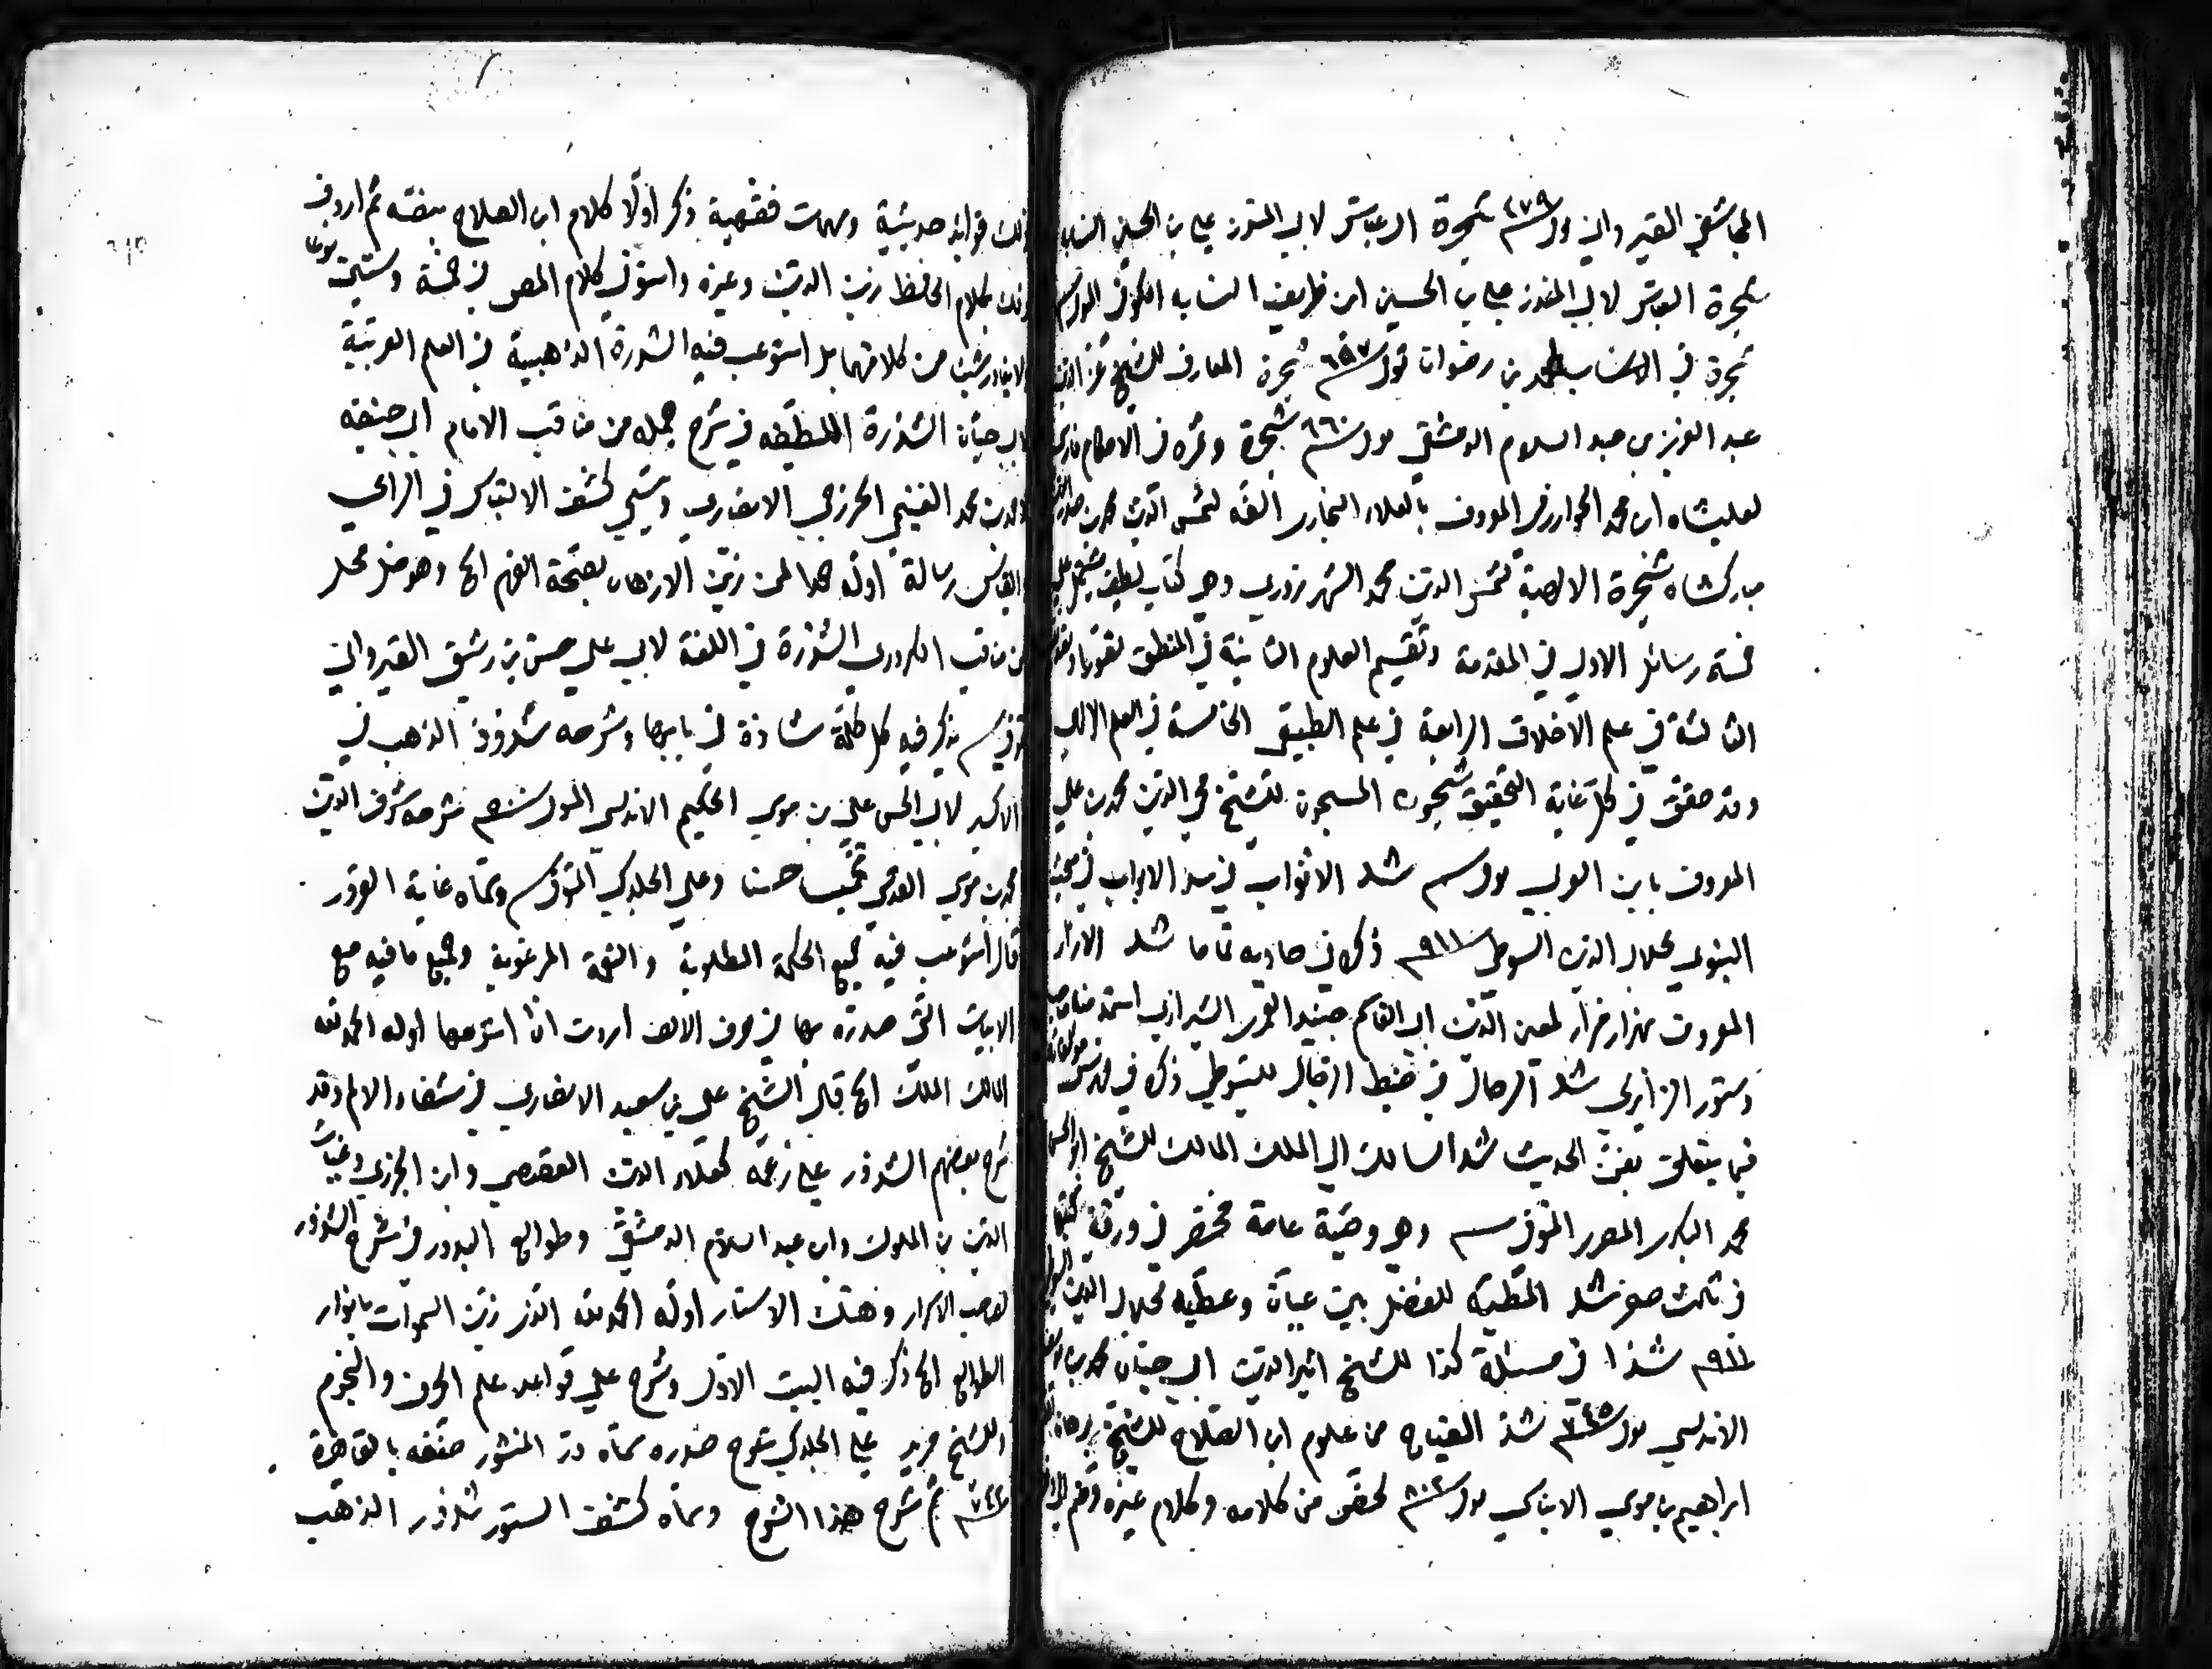 المجاشعي القيرواني مول ٤٧٩ شجرة العباس لابي المنذر علي بن الحسين النسابه
شجرة العباس لابي المنذر علي بن الحسين ابن طريف النسابه الكوفي المول سـ
شجرة في الانساب لمحمد بن رضوان مول ٦٥٧ شجرة المعارف للشيخ عز الدين
عبد العزيز بن عبد السلام الدمشقي مول ٦٦٠ شجرة وثمره في الاحكام فارسي
لعليشاه ابن محمد الخوارزمي المعروف بالعلاء البخاري الفه لشمس الدين محمد بن صدر الدين
مباركشاه شجرة الالهية لشمس الدين محمد الشهرزوري وهي كتاب لطيف مشتمل علي
خمسة رسائل الاولي في المقدمة وتقسيم العلوم الثانية في المنطق
الثالثة في علم الاخلاق الرابعة في علم الطبيعي الخامسة في العلم الالهي
وقد حقق في كل غاية التحقيق شجون المسجون للشيخ محي الدين محمد بن علي
المعروف بابن العربي مول سـ شد الاثواب في سد الابواب في مسجد
النبوي لجلال الدين السيوطي ٩١١ ذكر في حاويه تماما شد الازار
المعروف بهزار مزار لمعين الدين ابي القاسم جنيد العمري الشيرازي استمد منها صاحب
دستور الزائرين شد الرحال في ضبط الرجال للسيوطي ذكر في فهرس مولفاته
فيما يتعلق بفن الحديث شد السالك الي الملك المالك للشيخ ابو الحسن
محمد البكري المصري المتوفي سـ وهي وصية عامة مختصر في ورقة كتبها
في ثالث صفر شد المطية للفضل بين عيان وعطيه لجلال الدين السيوطي
٩١١ شذا في مسئلة كذا للشيخ اثير الدين ابي حيان محمد بن يوسف
الاندلسي مول ٧٤٥ شذ الفياح من علوم ابن الصلاح للشيخ برهان الدين
ابراهيم بن موسي الابناسي مول ٨٠٢ لخص من كلامه وكلام غيره وضم الي
ذلك فوائد حديثية ومهمات فقهية ذكر اولا كلام ابن الصلاح بنصه ثم اردف
ذلك بكلام الحافظ زين الدين وغيره واستوفي كلام المص في خمسة وستين نوعا
لا يغادر شيئا من كلامهما بل استوعب فيه الشذرة الذهبية في العلم العربية
لابي حيان الشذرة اللطيفه في شرح جمله من مناقب الامام ابي حنيفه
لاحمد بن محمد الغنيمي الخزرجي الانصاري وسمي كشف الالتباس في الراي
والقياس رسالة اوله حمدا لمن زين الاذهان بصحة الفهم الخ وهو حل محل
من مناقب الكردري الشذرة في اللغة لابي علي حسن بن رشيق القيرواني
توفي سـ يذكر فيه كل كلمة شاذة في بابها وشرحه شذور الذهب في
الاكسير لابي الحسن علي بن موسي الحكيم الاندلسي المول ٥٠٠ شرحه شرف الدين
محمد بن موسي القدسي تخميسا حسنا وعلي الجلدكي المتوفي سـ وسماه غاية السرور
قال استوعب فيه جميع الحكمة المطلوبة والنعمة المرغوبة وجميع ما فيه مع
الابيات التي صدرته بها في حرف الالف اردت ان استرحها اوله الحمد لله
المالك الملك الخ قال الشيخ علي بن سعيد الانصاري في شفاء الالم وقد
شرح بعضهم الشذور علي زعمه كعلاء الدين العقصي وابن الجزري وغياث
الدين بن الملوك وابن عبد السلام الدمشقي وطوالع البدور في شرح الشذور
لصاحب الاسرار وهتك الاستار اوله الحمد لله الذي زين السموات بانوار
الطوالع الخ ذكر فيه البيت الاول وشرح علي قواعد علم الحرف والنجوم
وللشيخ علي الجلدكي شرح صدره سماه در المنثور صنفه بالقاهرة
٧٤٢ ثم شرح هذا الشرح وسماه كشف الستور شذور الذهب